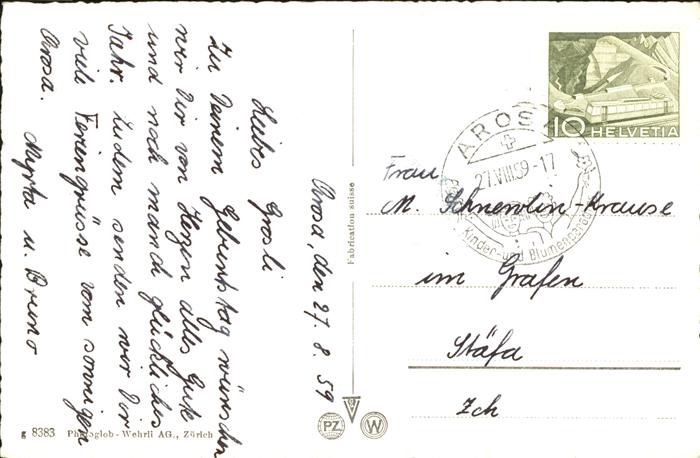 Arosa, den 27. 8. 59
Liebes Grosli
Zu Deinem Geburtstag wünschen
wir Dir von Herzen alles Gute
und noch manch glückliches
Jahr. Zudem senden wir Dir
viele Feriengrüsse vom sonnigen
Arosa.
Myrta u. Bruno
g 8383 Photoglob-Wehrli AG., Zürich
Fabrication suisse
PZ
W
10 HELVETIA
AROSA
27.VIII.59-17
Kinder- und Blumenparadies
Frau
M. Schnewlin-Krause
im Grafen
Stäfa
Zch